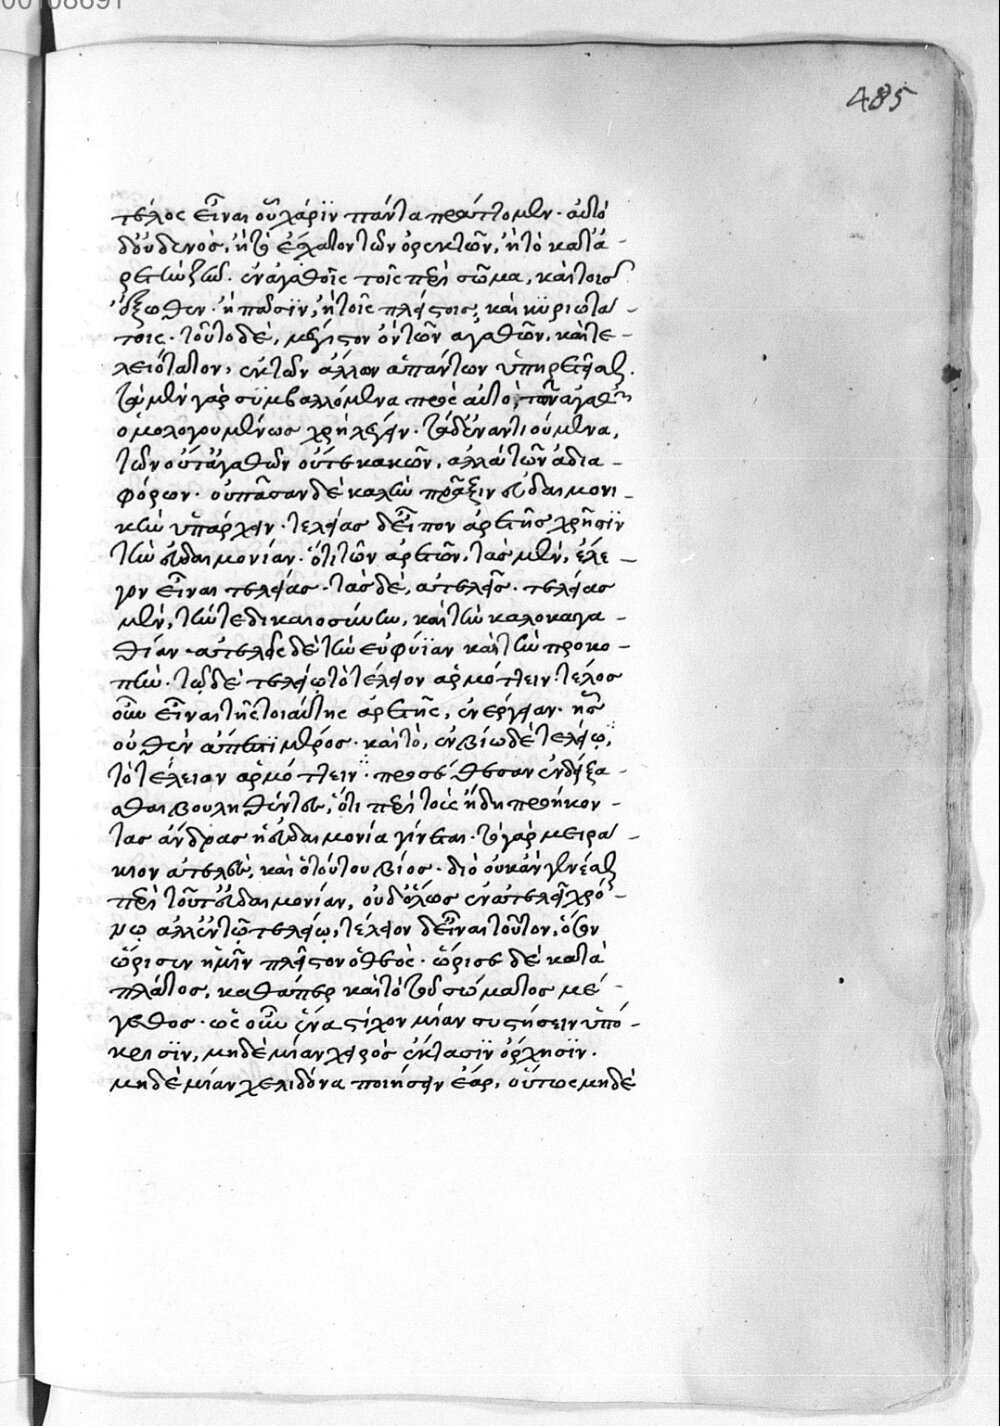 485
τέλος εἶναι οὗ χάριν πάντα πράττομεν· αὐτὸ
δ' οὐδενὸς, ἢ τὸ ἔσχατον τῶν ὀρεκτῶν, ἢ τὸ κατ' ἀ-
ρετὴν ζῆν· ἐν ἀγαθοῖς τοῖς περὶ σῶμα, καὶ τοῖς
ἔξωθεν· ἢ πᾶσιν, ἢ τοῖς πλείστοις, καὶ κυριωτά-
τοις· τοῦτο δὲ, μέγιστον ὂν τῶν ἀγαθῶν, καὶ τε-
λειότατον, ἐκ τῶν ἄλλων ἁπάντων ὑπηρετεῖσθαι·
τὰ μὲν γὰρ συμβαλλόμενα πρὸς αὐτὸ, τῶν ἀγαθῶν
ὁμολογουμένως χρὴ λέγειν· τὰ δ' ἐναντιούμενα,
τῶν οὔτ' ἀγαθῶν οὔτε κακῶν, ἀλλὰ τῶν ἀδια-
φόρων· οὐ πᾶσαν δὲ καλὴν πρᾶξιν εὐδαιμονι-
κὴν ὑπάρχειν· τελείας δ' εἶπον ἀρετῆς χρῆσιν
τὴν εὐδαιμονίαν· ὅτι τῶν ἀρετῶν, τὰς μὲν, ἔλε-
γον εἶναι τελείας· τὰς δὲ, ἀτελεῖς· τελείας
μὲν, τήν τε δικαιοσύνην, καὶ τὴν καλοκαγα-
θίαν· ἀτελεῖς δὲ τὴν εὐφυΐαν καὶ τὴν προκο-
πήν· τῷ δὲ τελείῳ τὸ τέλειον ἁρμόττειν· τέλος
οὖν εἶναι τῆς τοιαύτης ἀρετῆς, ἐνέργειαν· ἧς
οὐθὲν ἄπεστι μέρος· καὶ τὸ, ἐν βίῳ δὲ τελείῳ,
τὸ τέλειαν ἁρμόττειν· προσέθεσαν ἐνδείξα-
σθαι βουληθέντες, ὅτι περὶ τοὺς ἤδη προήκον-
τας ἄνδρας ἡ εὐδαιμονία γίνεται· τὸ γὰρ μειρά-
κιον ἀτελὲς, καὶ ὁ τούτου βίος· διὸ οὐκ ἂν γενέσθαι
περὶ τοῦτ' εὐδαιμονίαν, οὐδ' ὅλως ἐν ἀτελεῖ χρό-
νῳ ἀλλ' ἐν τῷ τελείῳ, τέλειον δ' εἶναι τοῦτον, ὅσον
ὥρισεν ἡμῖν πλεῖστον ὁ θεός· ὥρισε δὲ κατὰ
πλάτος, καθάπερ καὶ τὸ τοῦ σώματος μέ-
γεθος· ὡς οὖν ἕνα στίχον μίαν συστήσειν ὑπό-
κρισιν, μηδὲ μίαν χειρὸς ἔκτασιν ὄρχησιν·
μηδὲ μίαν χελιδόνα ποιήσειν ἔαρ, οὕτως μηδὲ